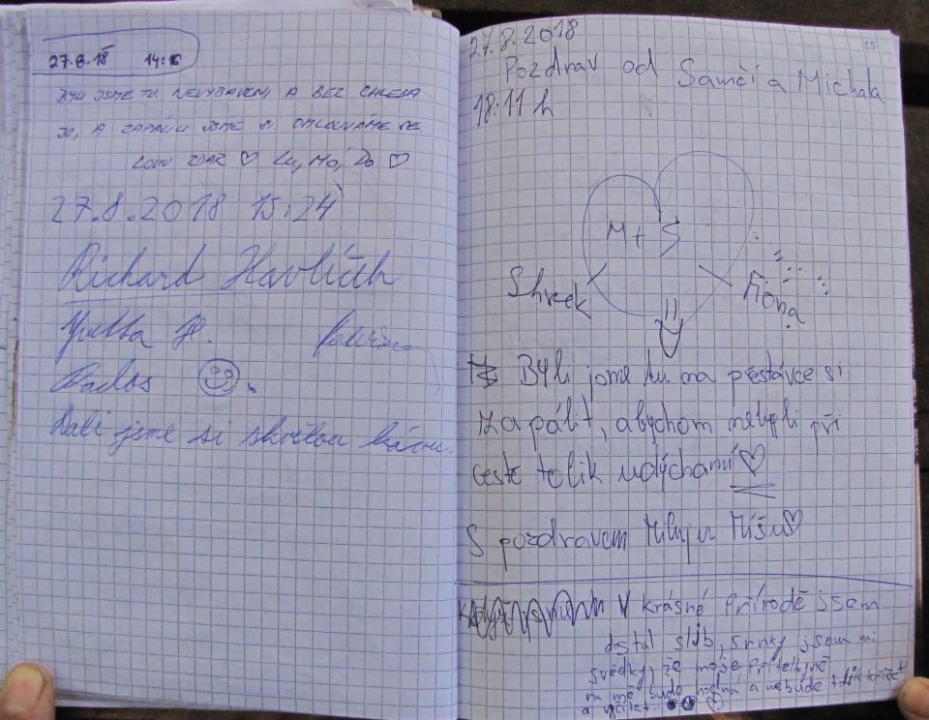 27.8.18 14:16
BYLI JSME TU NEVYBAVENI A BEZ CHLEBA
JO, A ZAPÁLILI JSME SI. OMLOUVÁME SE.
LOVU ZDAR ♡ Lu, Mo, Do ♡
27.8.2018 15:24
Richard Havlíček
Yvetta H.
Dali jsme si skvělou kávu.
25
27.8.2018
Pozdrav od Samči a Michala
18:11 h
M + S
Shrek
Fiona
Byli jsme tu na přestávce si
zapálit, abychom nebyli při
cestě tolik udýchaní ♡
S pozdravem Míšu ♡
V krásné přírodě jsem
dostal slib, srnky jsou mi
svědky, že moje přítelkyně
na mě bude hodná a nebude tolik křičet
a vyčítat.